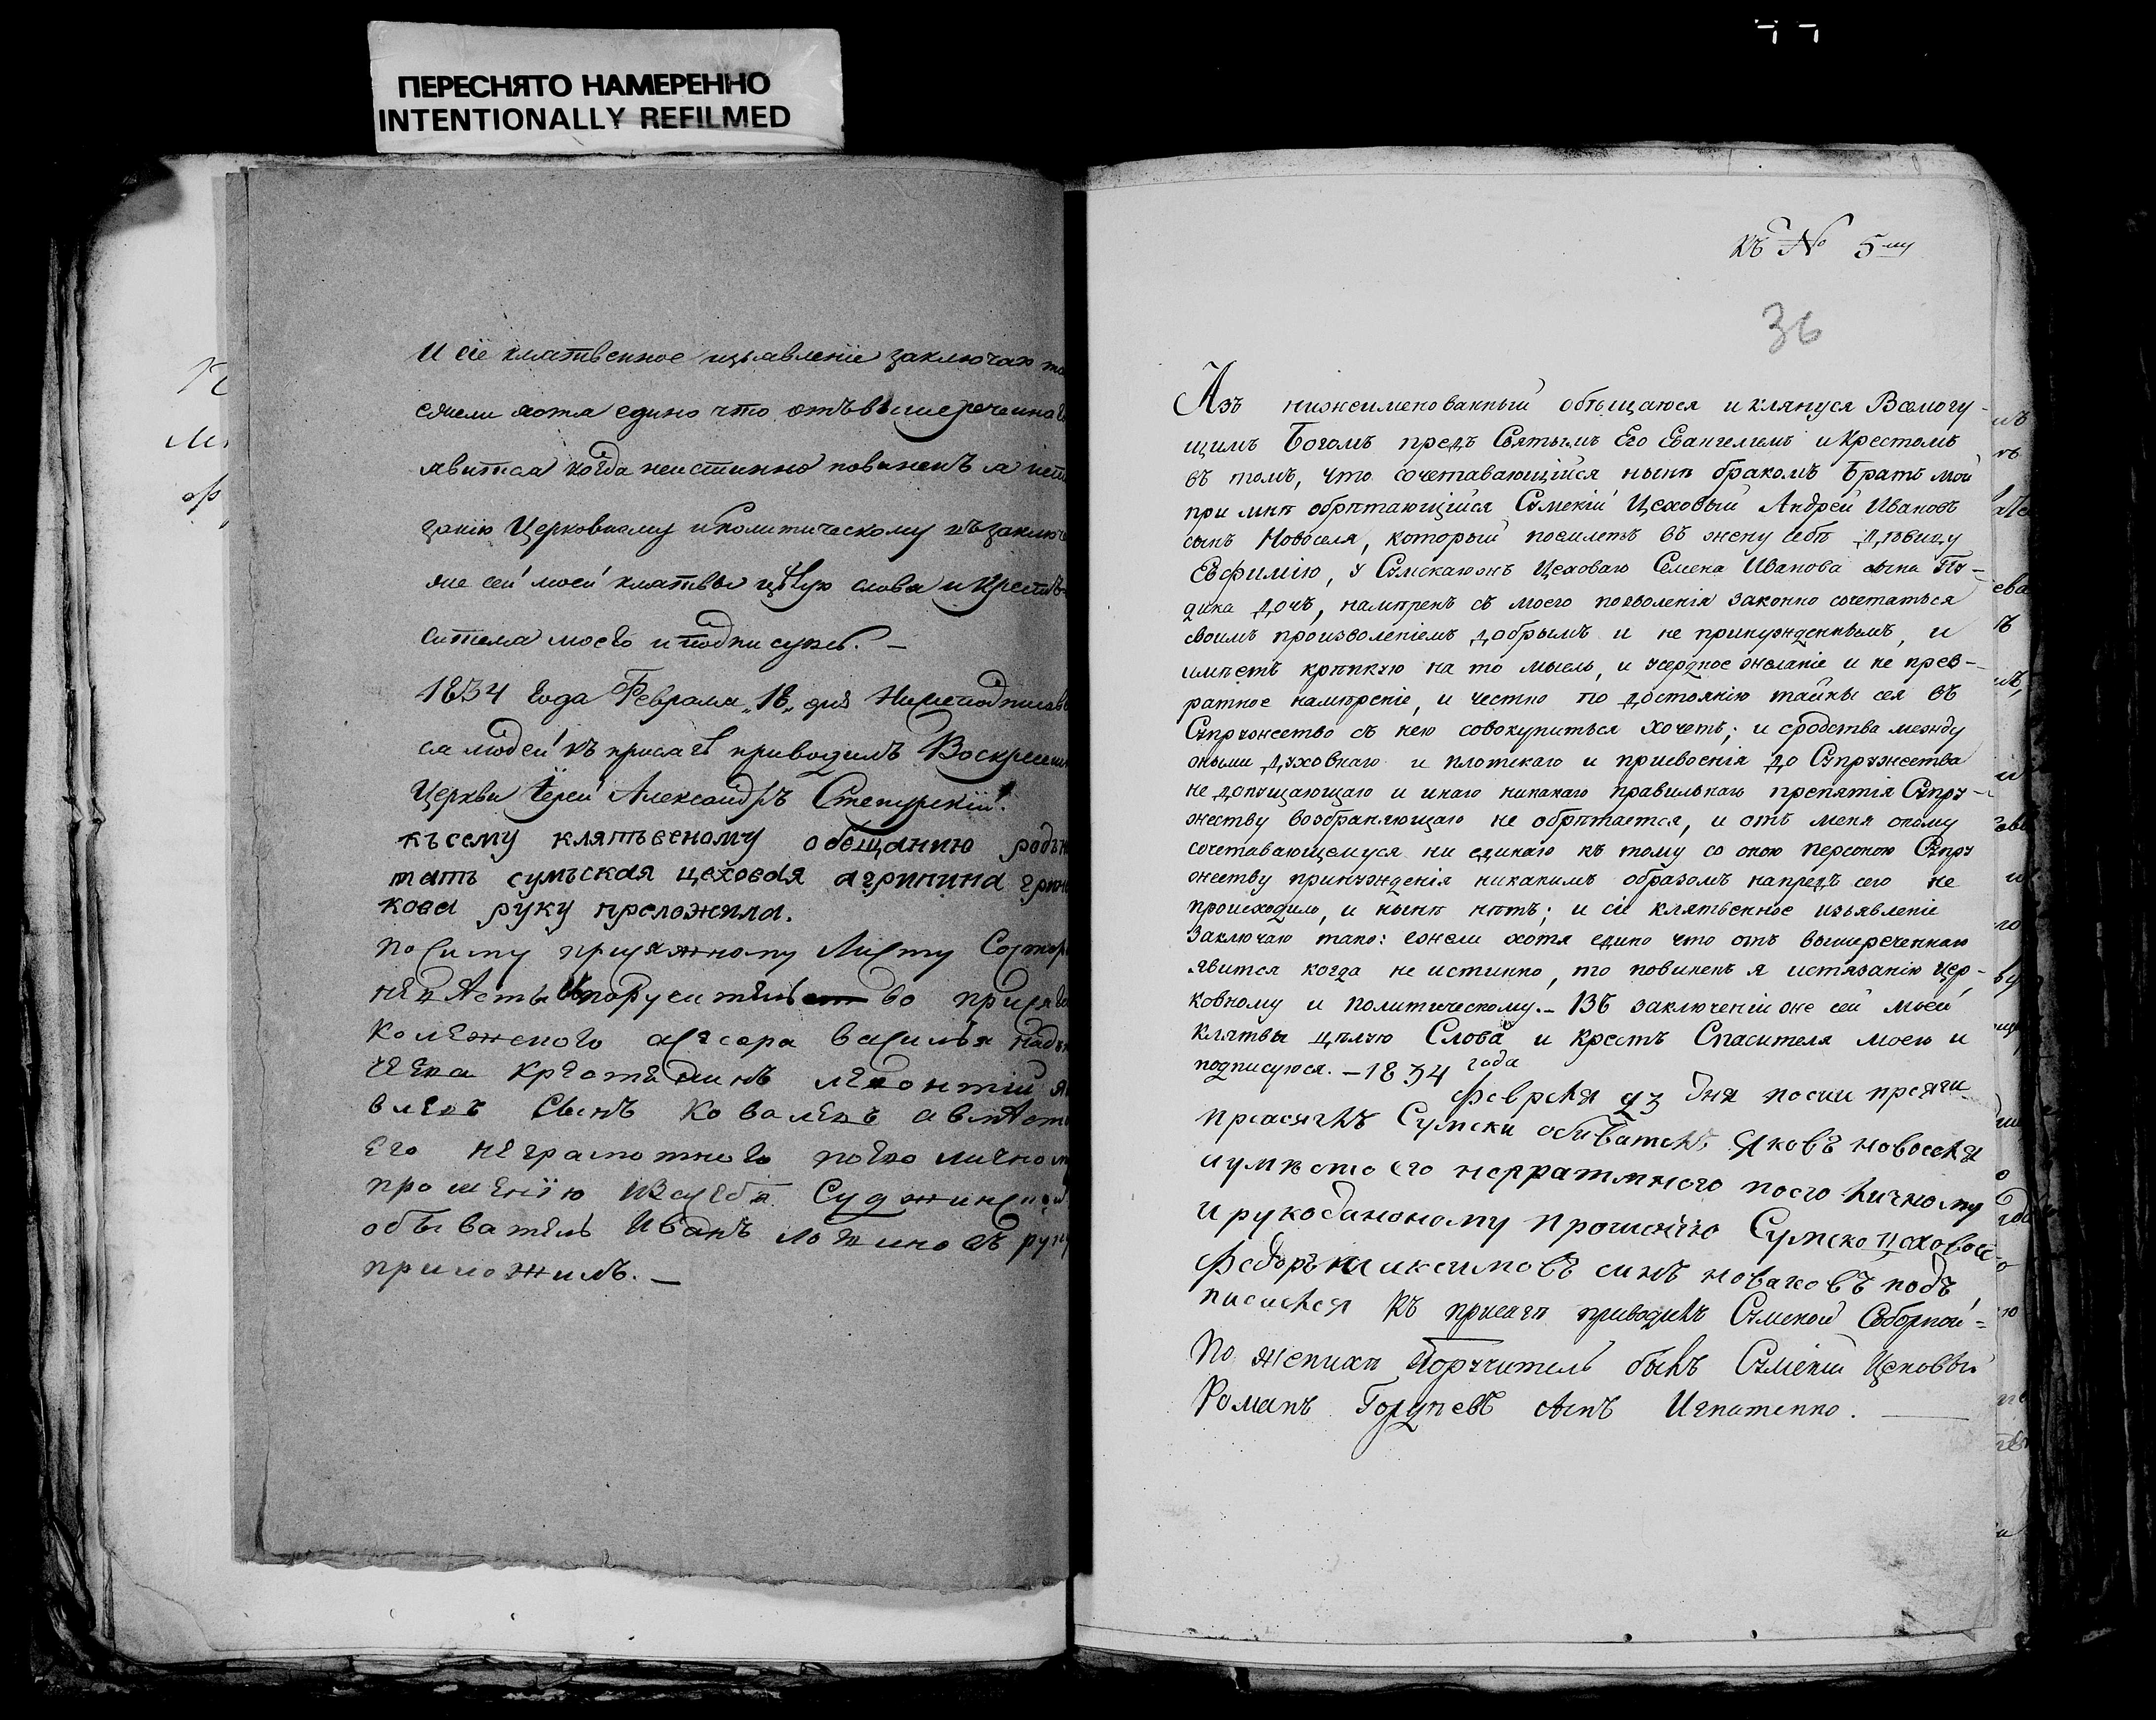 ПЕРЕСНЯТО НАМЕРЕННО
INTENTIONALLY REFILMED
И сіе клятвенное изъявленіе заключаю
ежели хотя едино что отъ вышереченнаго
явится когда неистинно повиненъ я
занію Церковному и политическому въ заключе
же сей моей клятвы цѣлую слова и Крестъ
сителя моего и подписуюсь. —
1834 года Февраля „18„ дня Нижеподписав
ся людей къ присягѣ приводилъ Воскресен
Церкви Іерей Александръ
къ сему клятвеному обещанию родн
мать сумъская цеховая агрипина
кова руку преложила.
по сему присяжному Листу
во присяга
колежского асесора василья
леонтій
вленъ Сынъ Коваленъ а вместо
его неграмотного по его лично
прошенїю Суджинской
обыватель Иванъ руку
приложилъ. —
къ № 5му
36
Азъ нижеименованный обѣщаюся и клянуся Всемогу-
щимъ Богомъ предъ Святымъ Его Евангелиемъ и Крестомъ
въ томъ, что сочетавающійся нынѣ бракомъ Братъ мой
при мнѣ обрѣтающійся Сумскій Цеховый Андрей Ивановъ
сынъ Новоселя, который поемлетъ въ жену себѣ дѣвицу
Евфимію, у Сумскаго Цеховаго Семена Иванова сына
дика дочь, намѣренъ съ моего позволенія законно сочетаться
своимъ произволеніемъ добрымъ и не принужденнымъ, и
имѣетъ крѣпкую на то мысль, и усердное желаніе и не прев-
ратное намѣреніе, и честно по достоянію тайны сея въ
Супружество съ нею совокупиться хочетъ; и сродства между
оными духовнаго и плотскаго и присвоенія до Супружества
не допущающаго и инаго никакаго правильнаго препятія Супру-
жеству возбраняющаго не обрѣтается, и отъ меня оному
сочетавающемуся ни единаго къ тому со оною персоною Супру
жеству принужденія никакимъ образомъ напредъ сего не
происходило, и нынѣ нѣтъ; и сіе клятвенное изъявленіе
Заключаю тако: ежели хотя едино что отъ вышереченнаго
явится когда не истинно, то повиненъ я истязанію Цер-
ковному и политическому. – Въ заключеніи же сей моей
клятвы цѣлую Слова и крестъ Спасителя моего и
подписуюся. – 1834 года
Февраля 23 дня посеи пресяги
пресягалъ Сумски обиватель Яковъ новоселя
поего личному
и рукоданоному прошенїю Сумско цеховои
Федоръ максимовъ синъ новаковъ подъ
писался Къ присягѣ приводилъ Сумской Соборной =
По женихѣ Поручитель былъ Сумскій Цеховый
Романъ сынъ Игнатенко. —